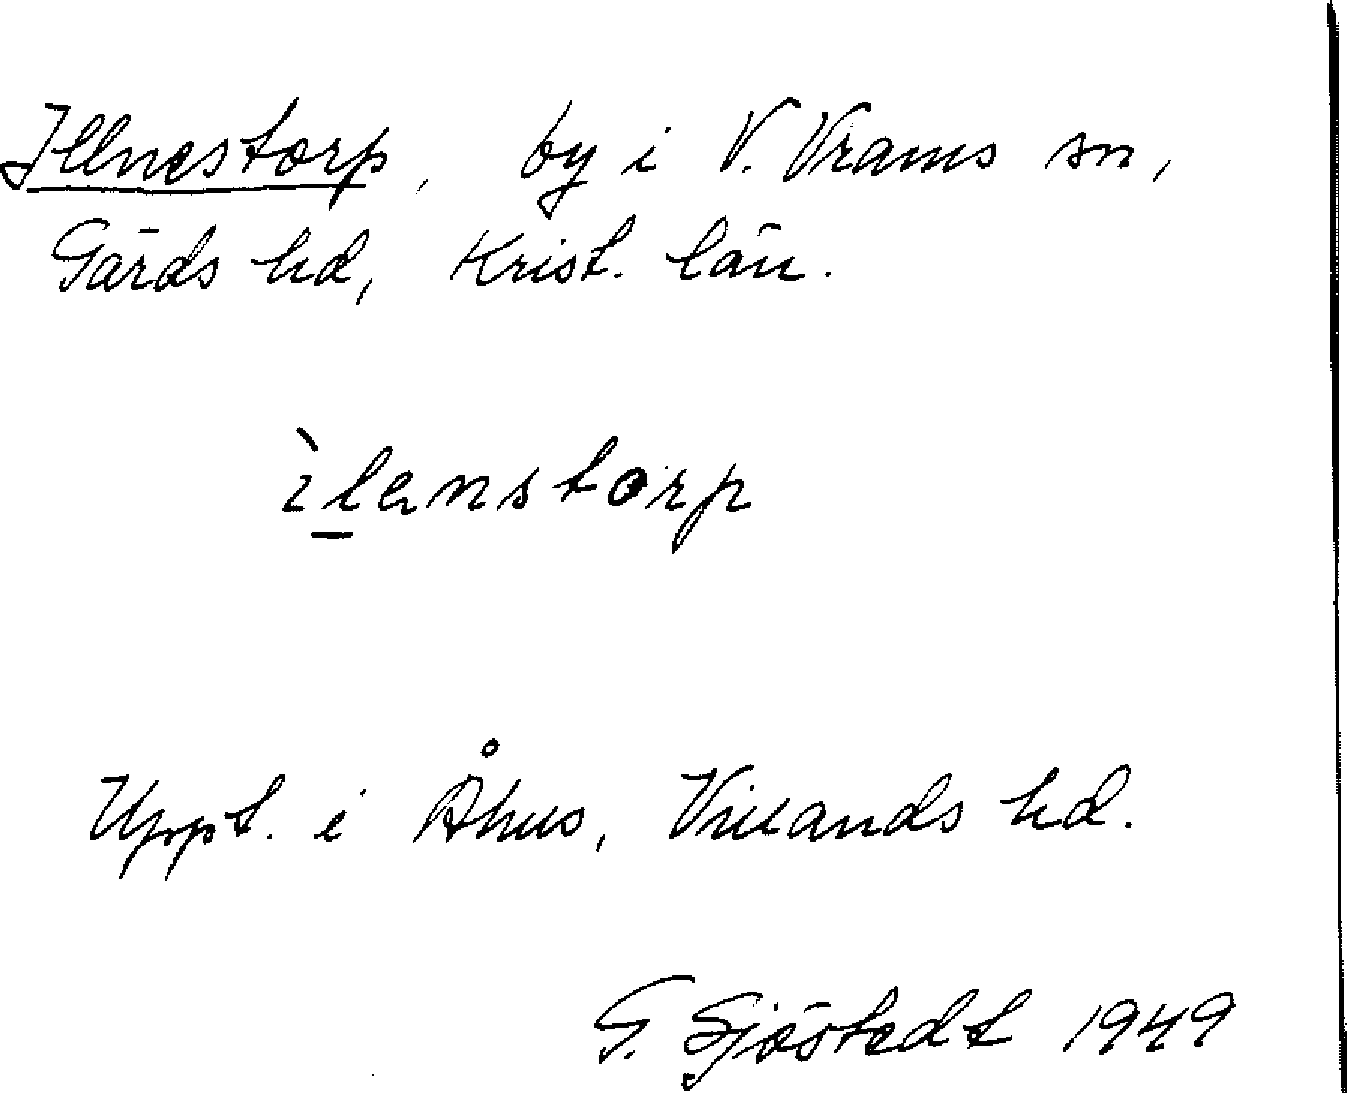 Illnestorp, by i V. Vrams sn,
Gärds hd, Krist. län.
ìlenstorp
Uppt. i Åhus, Villands hd.
G. Sjöstedt 1949